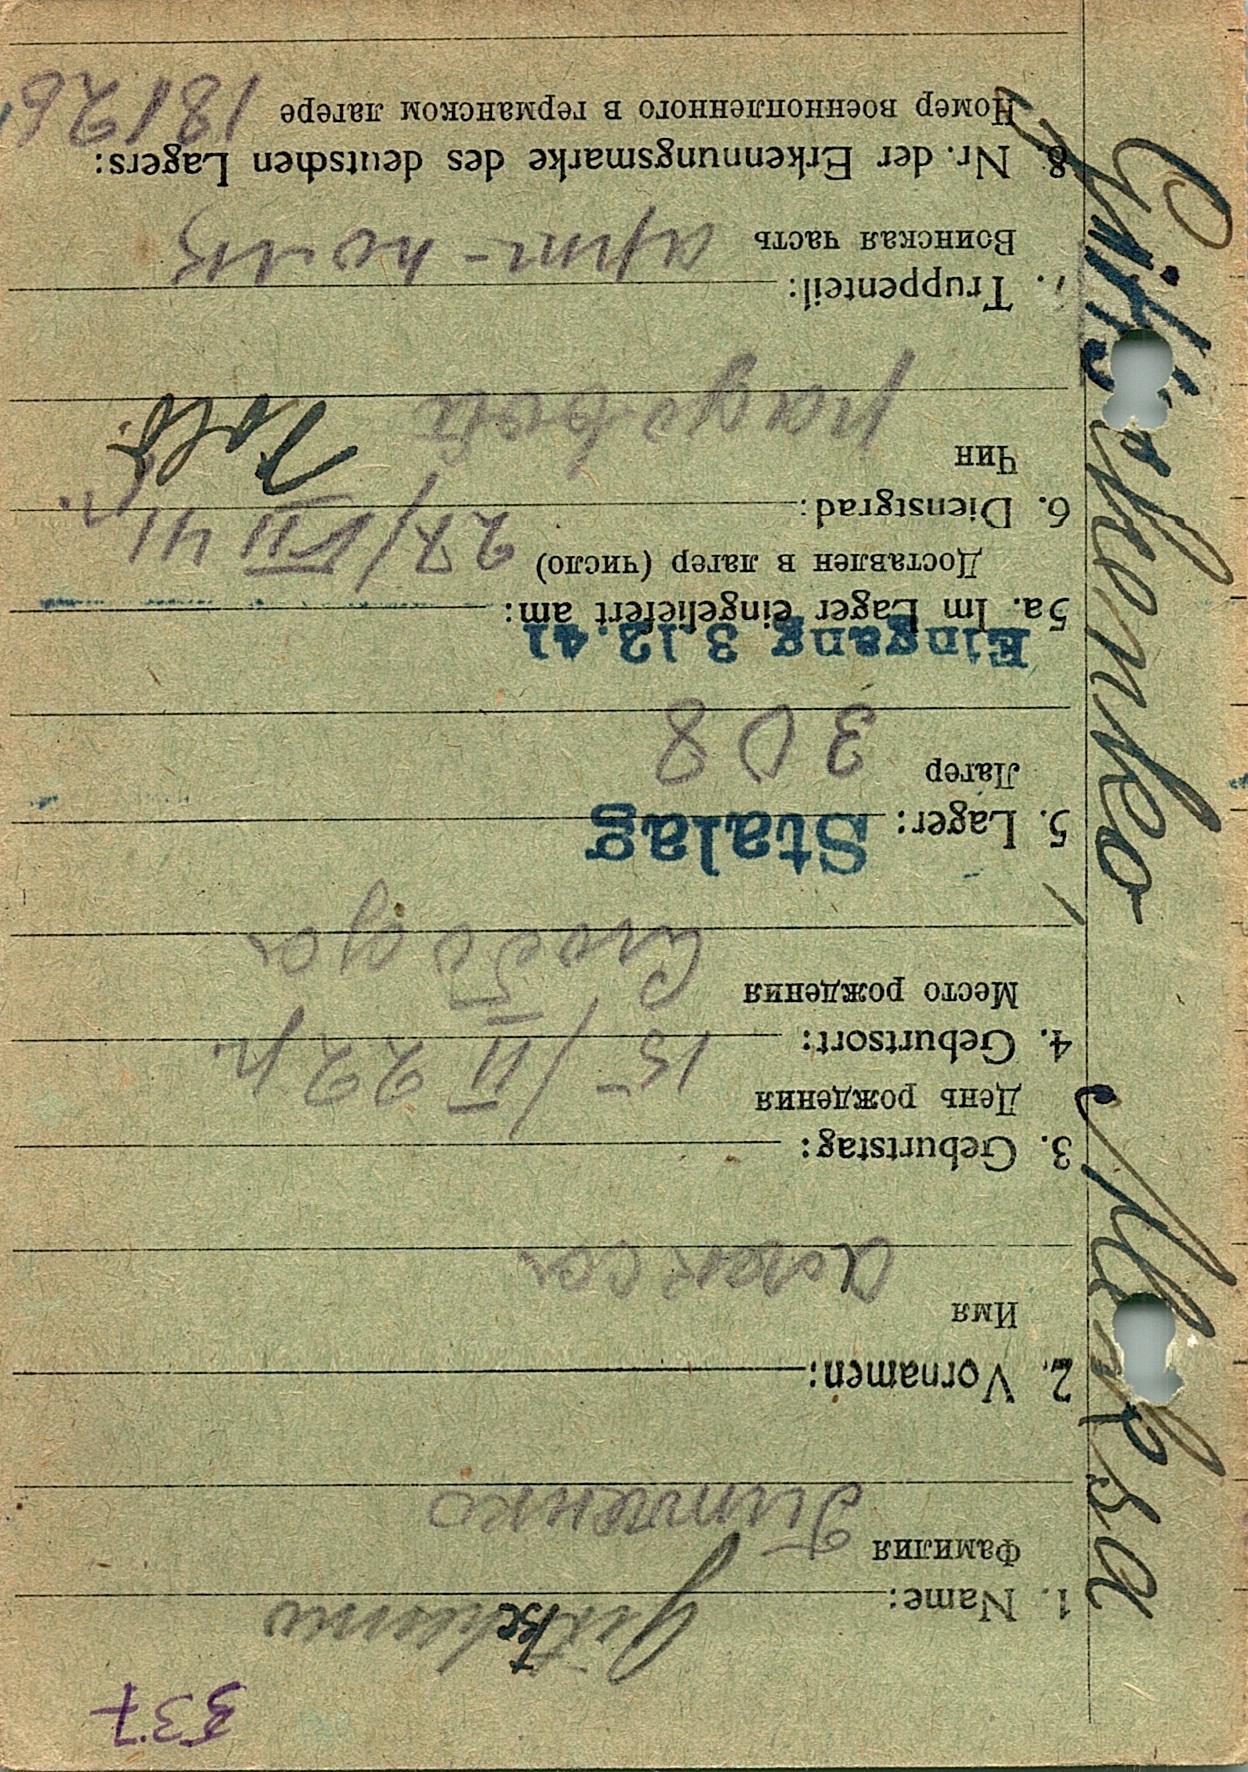 537
1. Name: Gitschenko
Фамилия Гитченко
2. Vornamen:
Имя Алекса
3. Geburtstag:
День рождения 15/II 22 г.
4. Geburtsort:
Место рождения Слобода
5. Lager: Stalag
Лагер 308
Eingang 3.12.41
5a. Im Lager eingeliefert am:
Доставлен в лагер (число) 27/VII 41 г.
6. Dienstgrad: Sold.
Чин рядовой
7. Truppenteil:
Воинская часть арт-полк
8. Nr. der Erkennungsmarke des deutschen Lagers:
Номер военнопленного в германском лагере 18126
Gitschenko, Aleksa